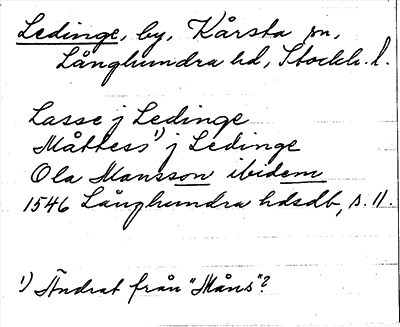 Ledinge, by, Kårsta sn,
Långhundra hd, Stockh. l.
Lasse j Ledinge
Måttess¹⁾ j Ledinge
Ola Mansson ibidem
1546 Långhundra hdsdb, s. 11.
¹⁾ Ändrat från "Måns"?